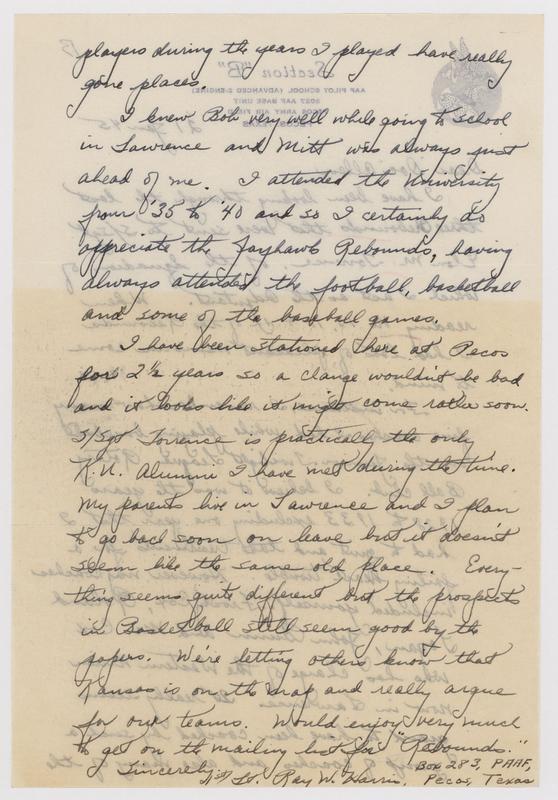 players during the years I played have really
gone places.
I knew Bob very well while going to school
in Lawrence and Mitt was always just
ahead of me. I attended the University
from '35 to '40 and so I certainly do
appreciate the Jayhawk Rebounds, having
always attended the football, basketball
and some of the baseball games.
I have been stationed here at Pecos
for 2 1/2 years so a change wouldn't be bad
and it looks like it might come rather soon.
S/Sgt Torrence is practically the only
K.U. Alumni I have met during the time.
My parents live in Lawrence and I plan
to go back soon on leave but it doesn't
seem like the same old place. Every-
thing seems quite different but the prospects
in Basketball still seem good by the
papers. We're letting others know that
Kansas is on the map and really argue
for our teams. Would enjoy very much
to get on the mailing list for "Rebounds."
Sincerely, 1st Lt. Ray W. Harris
Box 283, PAAF,
Pecos, Texas